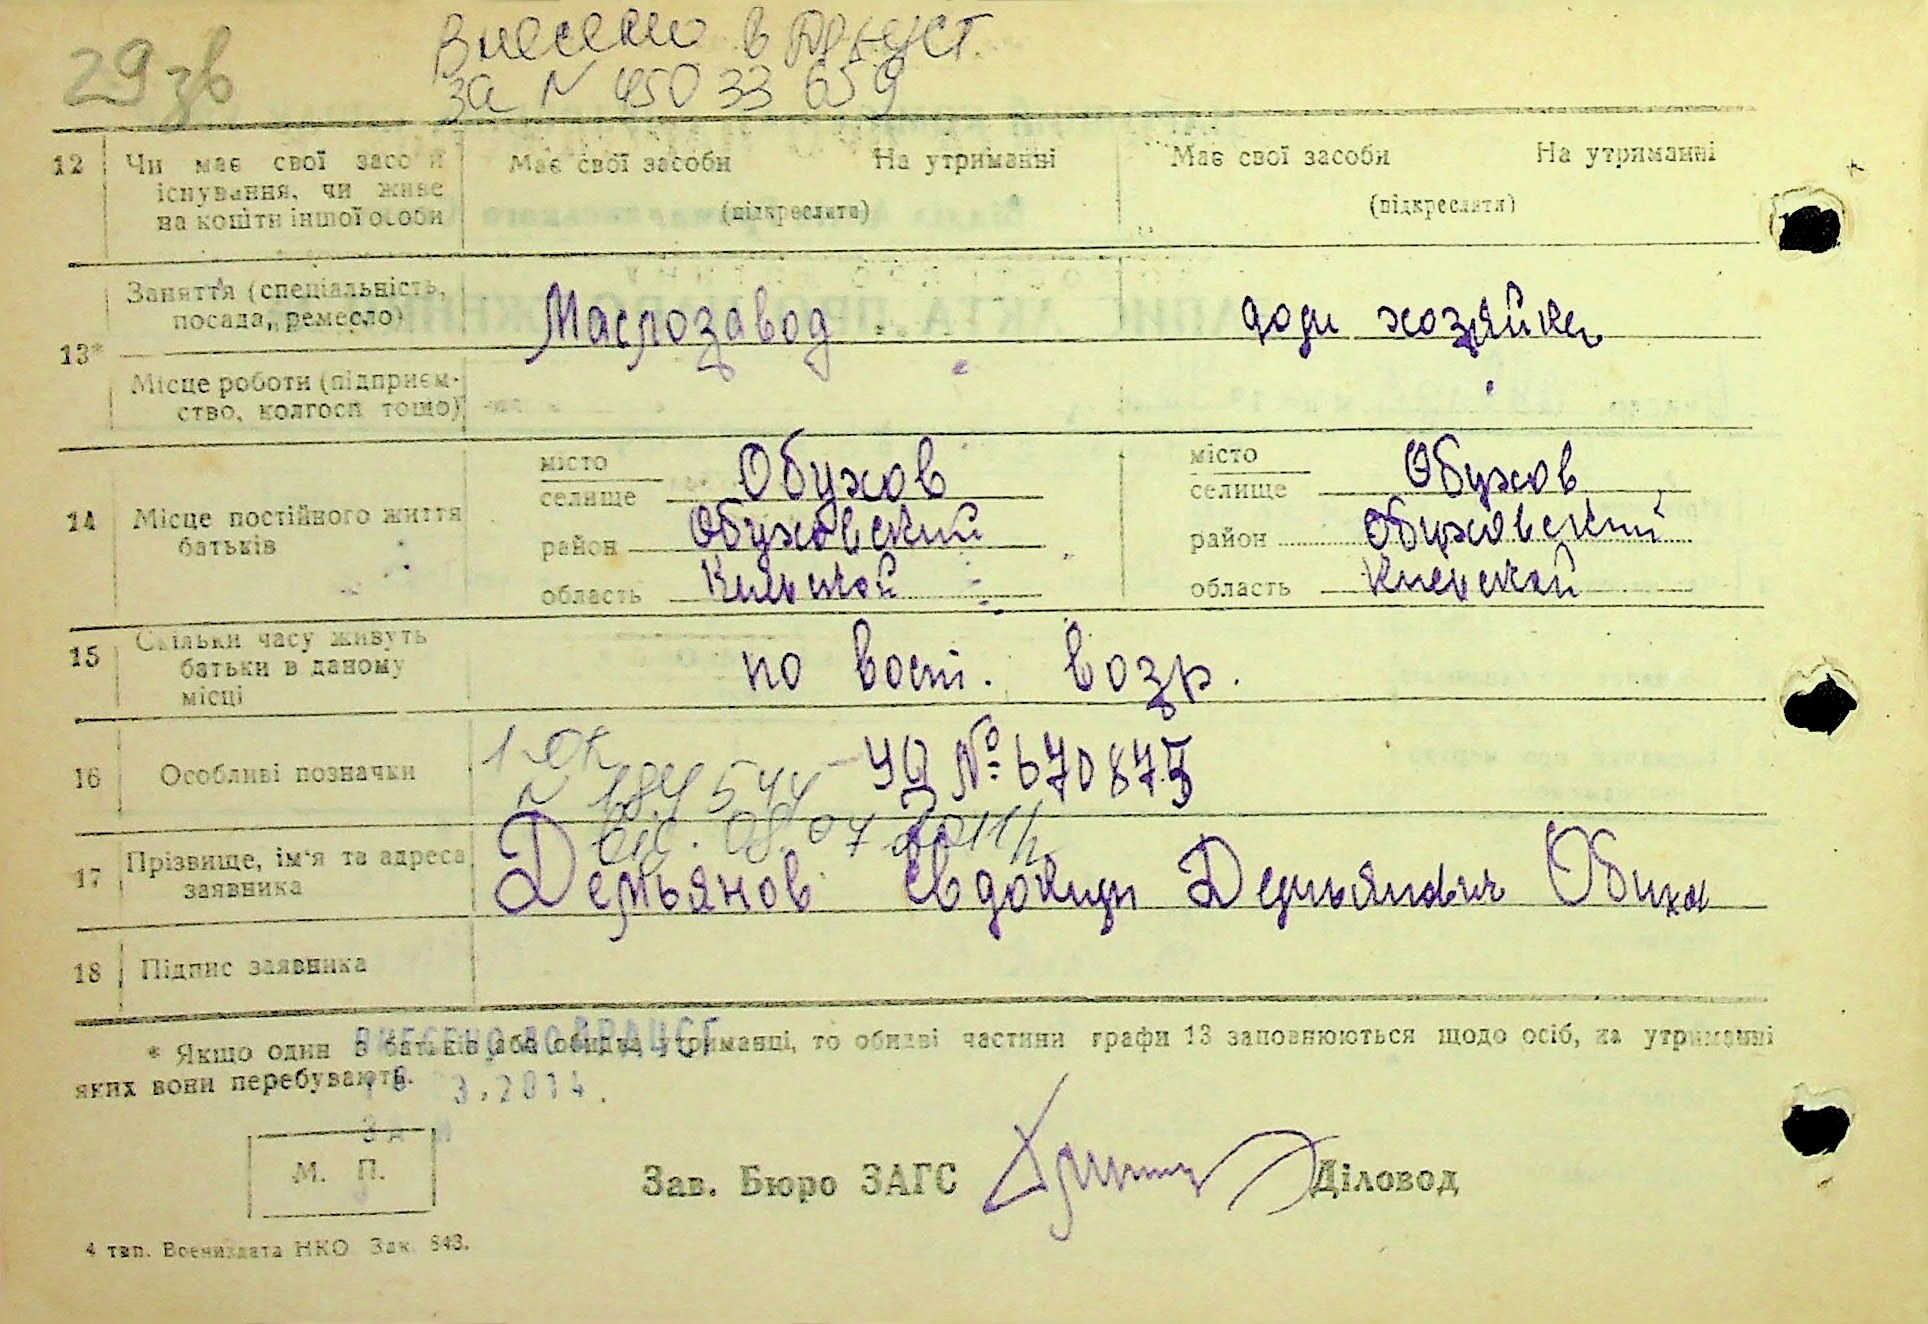 29 зв
Внесено в
за N 45033659
12 Чи має свої засоби існування, чи живе на кошти іншої особи
Має свої засоби На утриманні
(підкреслити)
Має свої засоби На утриманні
(підкреслити)
13*
Заняття (спеціальність, посада, ремесло)
Маслозавод
дом хозяйка
Місце роботи (підприємство, колгосп тощо)
14 Місце постійного життя батьків
місто
селище Обухов
район Обуховский
область Киевской
місто
селище Обухов
район Обуховский
область Киевской
15 Скільки часу живуть батьки в даному місці
по возр.
16 Особливі позначки
N 184544
від. 08.07.2011р
№ 670875
17 Прізвище, ім'я та адреса заявника
Демьянов Евдоким Демьянович
18 Підпис заявника
* Якщо один з батьків або обидва на утриманці, то обидві частини графи 13 заповнюються щодо осіб, на утриманні
яких вони перебувають.
3.2014.
М. П.
Зав. Бюро ЗАГС
Діловод
4 тип. Воениздата НКО Зак. 843.